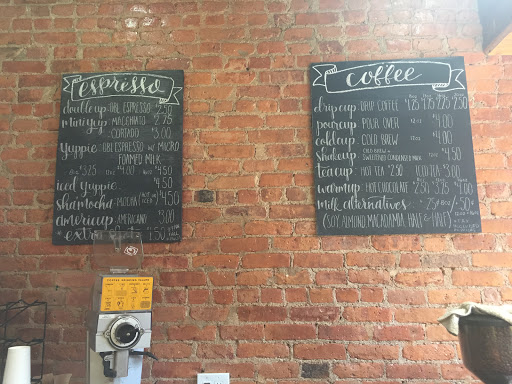 espresso
doubleup · DBL ESPRESSO
mini yup MACCHIATO 2.75
CORTADO $3.00
yuppie · DBL ESPRESSO w/ MACRO
FOAMED MILK
8oz $3.75 $4.00 $4.50
iced yuppie 4.50
shamocha · MOCHA $4.50
americup · AMERICANO $3.00
coffee
drip cup · DRIP COFFEE
pourcup · POUR OVER 12oz $4.00
coldcup · COLD BREW $4.00
shakeup · COLD BREW w/ SWEETENED CONDENSED MILK 12oz $4.50
teacup · HOT TEA $2.50 ICED TEA $3.00
warmup · HOT CHOCOLATE
milk alternatives
(SOY ALMOND MACADAMIA HALF & HALF)